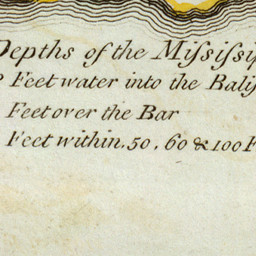 Depths of the Miſsiſsip
Feet water into the Baliſ
Feet over the Bar
Feet within. 50, 60 & 100 F